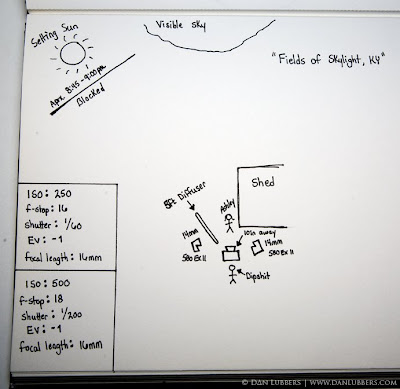 Setting Sun
Visible Sky
"Fields of Skylight, KY"
Aprx. 8:45-9:00pm
Blocked
Shed
8ft Diffuser
Ashley
10in away
14mm
580 Ex II
14mm
580 Ex II
Dipshit
ISO: 250
f-stop: 16
shutter: 1/60
Ev: -1
focal length: 16mm
ISO: 500
f-stop: 18
shutter: 1/200
Ev: -1
focal length: 16mm
© DAN LUBBERS | WWW.DANLUBBERS.COM